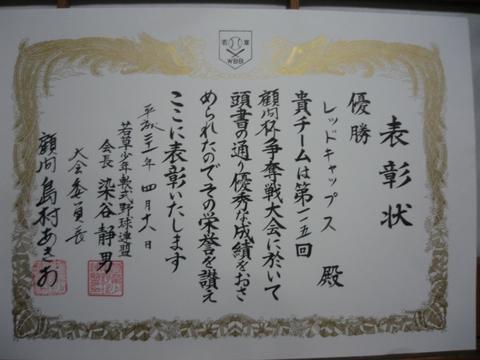 若草
WBB
表彰状
優勝
レッドキャップス 殿
貴チームは第一五回
顧問杯争奪戦大会に於いて
頭書の通り優秀な成績をおさ
められたのでその栄誉を讃え
ここに表彰いたします
平成二十一年四月十八日
若草少年軟式野球連盟
会長 染谷静男
大会委員長
顧問 島村あきお